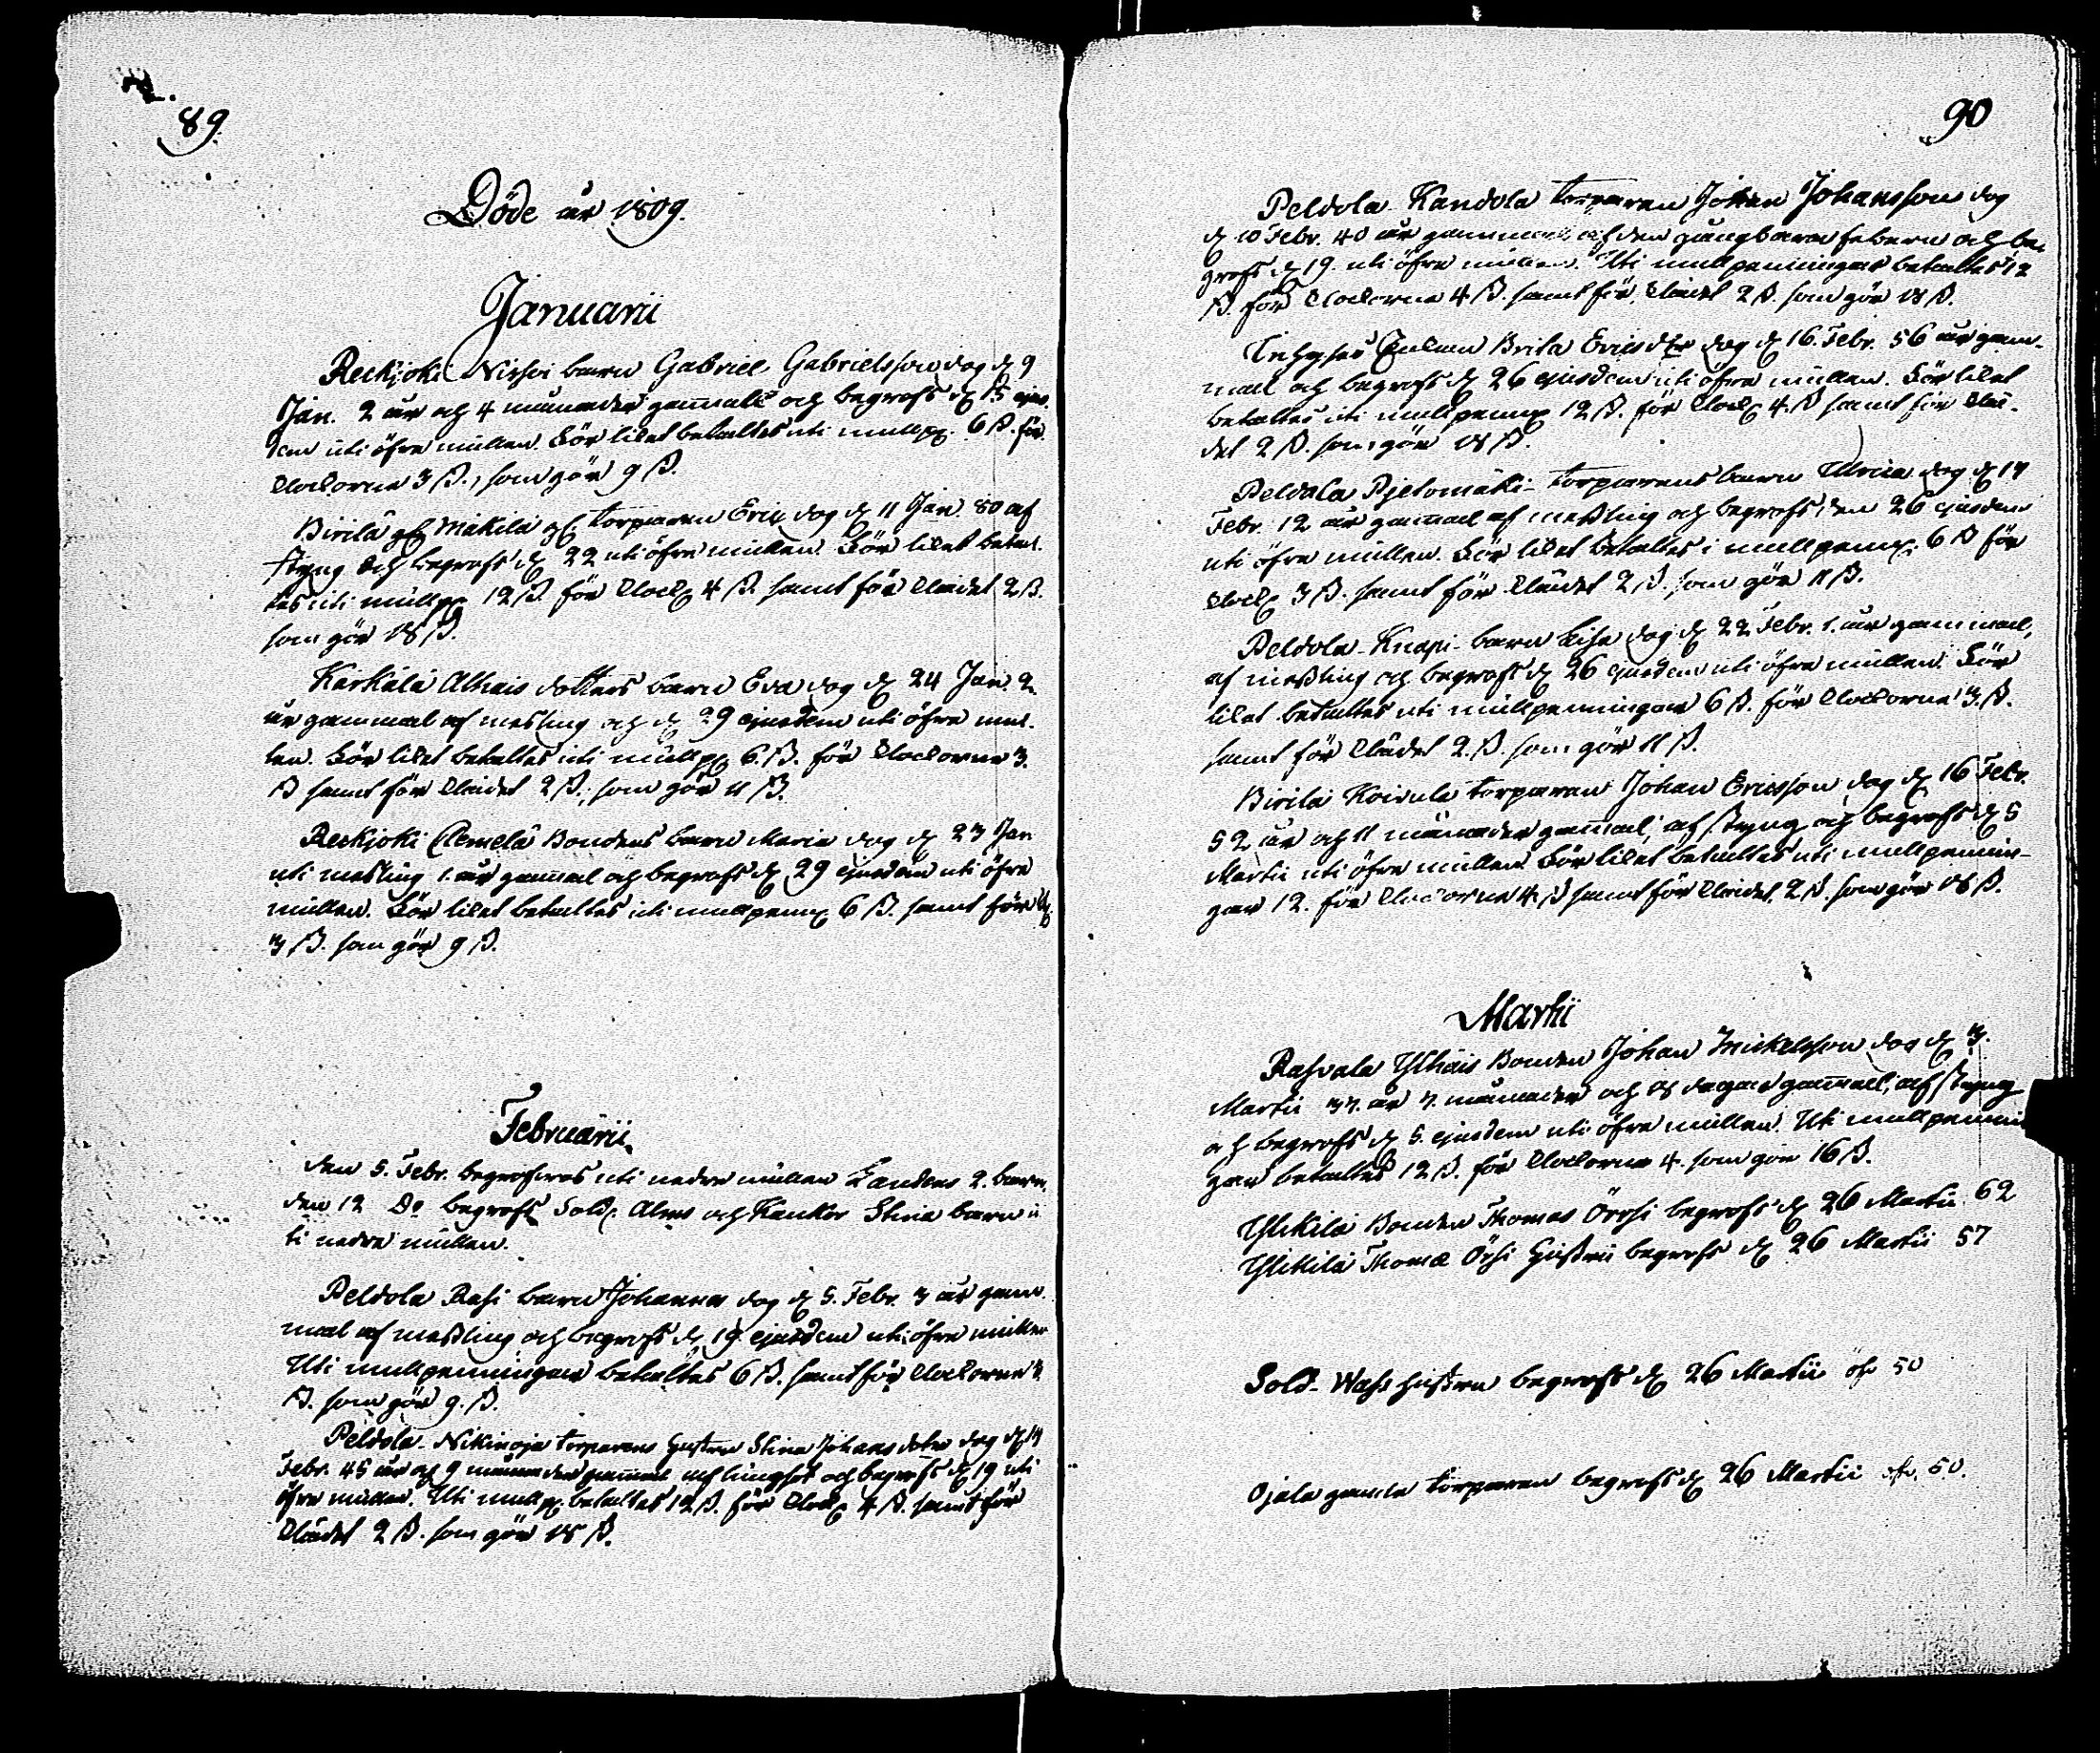 89.
Döde år 1809.
Januarii
Reckjoki Nissoi barn Gabriel Gabrielsson dog d. 9
Jan. 2 år och 4 månader gam̄alt och begrofs d. 15 ejus-
dem uti öfre mullen. För liket betaltes uti mullp. 6 ß. för
klockorna 3 ß., som gör 9 ß.
Birilä Mäkilä torparen Eric dog d. 11 Jan. 80 af
styng och begrofs d. 22 uti öfre mullen. För liket betal-
tes uti mullp. 12 ß. för klock. 4 ß. samt för klädet 2 ß.
som gör 18 ß.
Karkälä Alhais dotters barn Eva dog d. 24 Jan. 2
år gammal af mesling och d. 29 ejusdem uti öfre mul-
len. För liket betaltes uti mullp. 6. ß. för klockorna 3.
ß samt för klädet 2 ß., som gör 11 ß.
Reckjoki Clemelä Bondens barn Maria dog d. 23 Jan
uti mesling 1. år gam̄al och begrofs d. 29 ejusdem uti öfre
mullen. För liket betaltes uti mullpenn. 6 ß. samt för kl.
3 ß. som gör 9 ß.
Februarii
den 5. Febr. begrofwos uti nedre mullen 2. barn.
den 12 Do begrofs Sold. Alms och Stina barn u-
ti nedre mullen.
Peldola Rasi barn Johannes dog d. 5. Febr. 3 år gam-
mal af messling och begrofs d. 19 ejusdem uti öfre mullen
Uti mullpenningar betaltes 6 ß. samt för klockorna 3
ß. som gör 9. ß.
Peldola Nikinoja torparens hustru Stina Johans doter dog d. 14
Febr. 45 år och 9 månader gammal af lungsot och begrofs d. 19 uti
öfre mullen. Uti mullp. betaltes 12 ß. för klock. 4 ß. samt för
klädet 2 ß. som gör 18 ß.
90
Peldola Kandola torparen Johan Johansson dog
d. 10 Febr. 40 år gammal af den gångbara febern och be-
grofs d. 19. uti öfre mullen. Uti mullpenningar betaltes 12
ß. för klockorna 4 ß. samt för klädet 2 ß. som gör 18 ß.
Inhyses Enkan Brita Ericsdtr dog d. 16. Febr. 56 år gam-
mal och begrofs d. 26 ejusdem uti öfre mullen. För liket
betaltes uti mullpenn. 12 ß. för klock. 4. ß samt för klä-
det 2 ß. som gör 18 ß.
Peldola Pjelomäki torparens barn Ulrica dog d. 17
Febr. 12 år gam̄al af messling och begrofs den 26 ejusdem
uti öfre mullen. För liket betaltes i mullpenn. 6 ß för
klock. 3 ß. samt för klädet 2 ß. som gör 11 ß.
Peldola Knapi barn Lisa dog d. 22 Febr. 1. år gammal,
af messling och begrofs d. 26 ejusdem uti öfre mullen. För
liket betaltes uti mullpenningar 6 ß. för klockorna 3. ß.
samt för klädet 2. ß. som gör 11 ß.
Birilä Koivula torparen Johan Ericsson dog d. 16 Febr.
52 år och 11 månader gam̄al, af styng och begrofs d. 5
Martii uti öfre mullen. För liket betaltes uti mullpennin-
gar 12. för klockorna 4. ß samt för klädet 2 ß. som gör 18 ß.
Martii
Rasvala Ylhäis Bonden Johan Mickelsson dog d. 3.
Martii 37. år 7. månader och 18 dagar gam̄al, af styng
och begrofs d. 5. ejusdem uti öfre mullen. Uti mullpennin
gar betaltes 12 ß. för klockorna 4. som gör 16 ß.
Ylikilä Bonden Thomas Örssi begrofs d. 26 Martii 62
Ylikilä Thomæ Örsi hustru begrofs d. 26 Martii 57
Sold. Wass hustru begrofs d. 26 Martii öfr 50
Ojala gamla torparen begrofs d. 26 Martii öfr. 50.